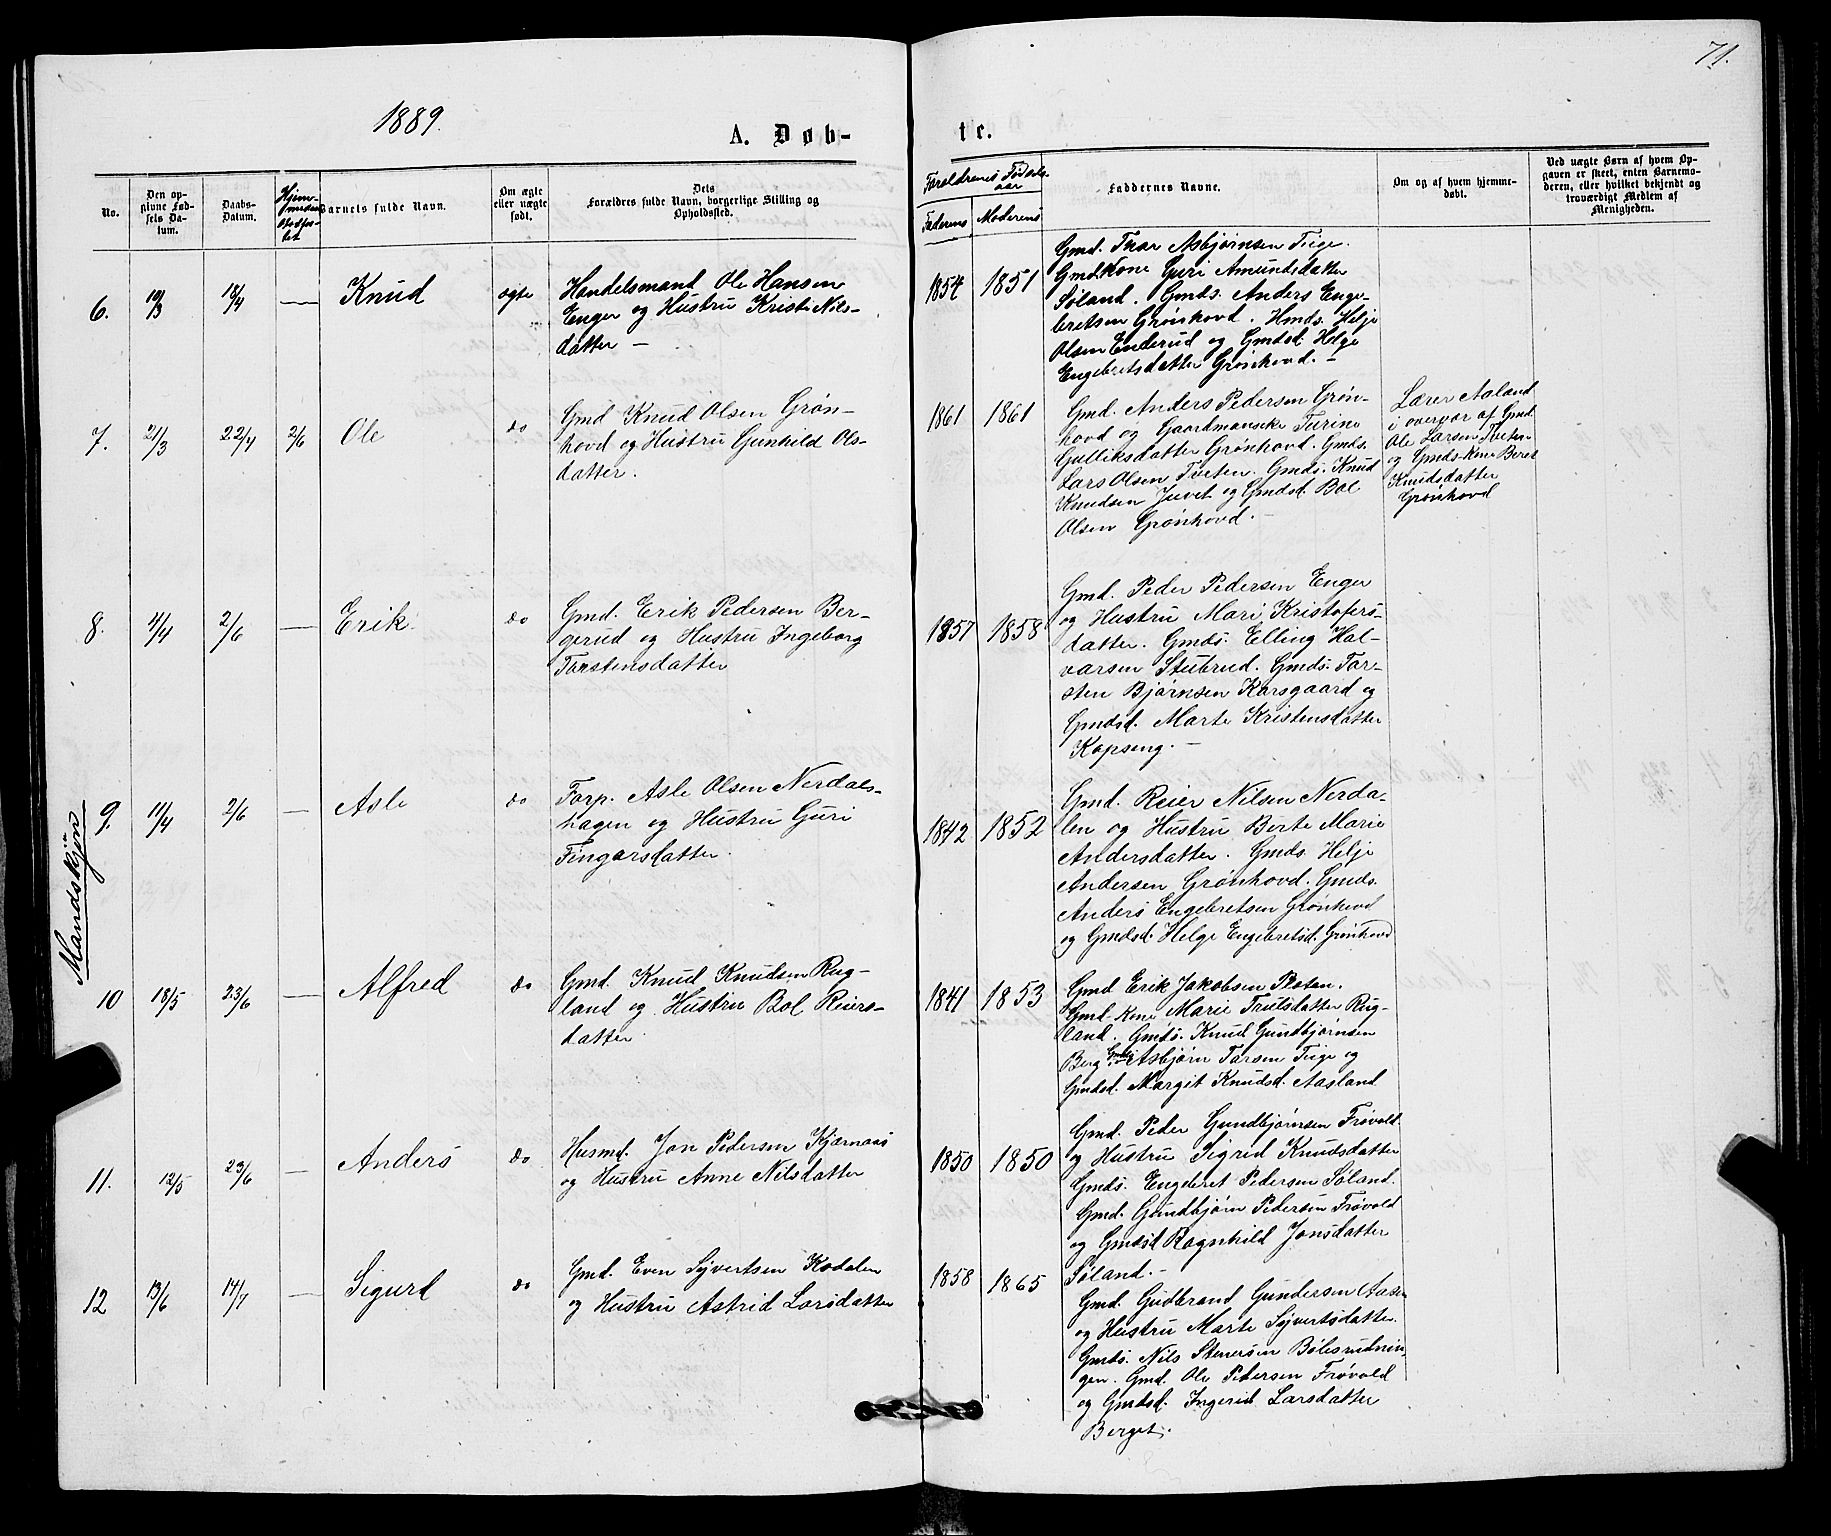 71.
1889.
A. Døb-
te.
No.
Den op-
givne Fød-
sels Da-
tum.
Daabs-
Datum.
Barnets fulde Navn.
Om ægte
eller uægte
født.
Dets
Forældres fulde Navn, borgerlige Stilling og
Opholdssted.
Forældrenes Fødsels-
aar
Faderens
Moderens
Faddernes Navne.
Om og af hvem hjemme-
døbt.
Ved uægte Børn af hvem Op-
gaven er skeet, enten Barnemo-
deren, eller hvilket bekjendt og
troværdigt Medlem af
Menigheden.
Mandskjøn
6.
19/3
18/4
—
Knud
ægte
Handelsmand Ole Hansen
Enger og Hustru Kristi Nils-
datter —
1854
1851
Gmd. Thor Asbjørnsen Tuge.
Gmd.Kone Guri Amundsdatter
Søland. Gmds. Anders Enge-
bretsen Grønhovd. Hmds. Helje
Olsen Enderud og Gmdsd. Helge
Engebretsdatter Grønhovd. —
7.
21/3
22/4
2/6
Ole
do
Gmd Knud Olsen Grøn-
hovd og Hustru Gunhild Ols-
datter.
1861
1861
Gmd. Anders Pedersen Grøn-
hovd og Gaardmanske Turine
Gulliksdatter Grønhovd. Gmds.
Lars Olsen Tveten. Gmds. Knud
Knudsen Juvet og Gmdsd. Bol
Olsen Grønhovd. —
Lærer Aaland
i overvær af Gmd.
Ole Larsen Tveten
og Gmds-Kone Beret
Knudsdatter
Grønhovd
8.
4/4
2/6
—
Erik
do
Gmd. Erik Pedersen Ber-
gerud og Hustru Ingeborg
Torstensdatter
1857
1858
Gmd. Peder Pedersen Enger
og Hustru Mari Kristofers-
datter. Gmds. Elling Hal-
varsen Stubrud. Gmds. Tor-
sten Bjørnsen Karsgaard og
Gmdsd. Marte Kristensdatter
Kopseng. —
9.
11/4
2/6
—
Asle
do
Torp. Asle Olsen Nerdals-
hagen og Hustru Guri
Fingarsdatter.
1842
1852
Gmd. Reier Nilsen Nerda-
len og Hustru Berte Marie
Andersdatter. Gmds. Helje
Andersen Grønhovd. Gmds.
Anders Engebretsen Grønhovd
og Gmdsd. Helge Engebretsd. Grønhovd
10
18/5
23/6
—
Alfred
do
Gmd. Knud Knudsen Rug-
land og Hustru Bol Reiers-
datter
1841
1853
Gmd Erik Jakobsen Platen.
Gmd. Kone Marie Trulsdatter Rug-
land. Gmds. Knud Gundbjørnsen
Berg Gmds. Asbjørn Torsen Tuge og
Gmdsd. Margit Knudsd. Aasland
11.
12/5
23/6
—
Anders
do
Husmd. Jon Pedersen Kjærnaas
og Hustru Anne Nilsdatter
1850
1850
Gmd. Peder Gundbjørnsen Frøvold.
og Hustru Sigrid Knudsdatter
Gmds. Engebret Pedersen Søland.
Gmd. Gundbjørn Pedersen Frøvold
og Gmdsd Ragnhild Jonsdatter
Søland. —
12
13/6
14/7
—
Sigurd
do
Gmd. Even Syvertsen Kodalen
og Hustru Astrid Larsdatter
1858
1865
Gmd. Gudbrand Gundersen Aasen
og Hustru Marte Syvertsdatter.
Gmds. Nils Stenersen Bølesrudnin-
gen. Gmd. Ole Pedersen Frøvold
og Gmdsd. Ingerid Larsdatter
Berget.